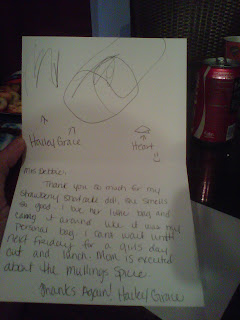 Hailey Grace
Heart
Mrs. Debbie:
Thank you so much for my
Strawberry Shortcake doll, she smells
so good. I love her little bag and
carry it around like it was my
personal bag. I cant wait until
next Friday for a girls day
out and lunch. Mom is excited
about the Mullings Spice.
Thanks Again! Hailey Grace